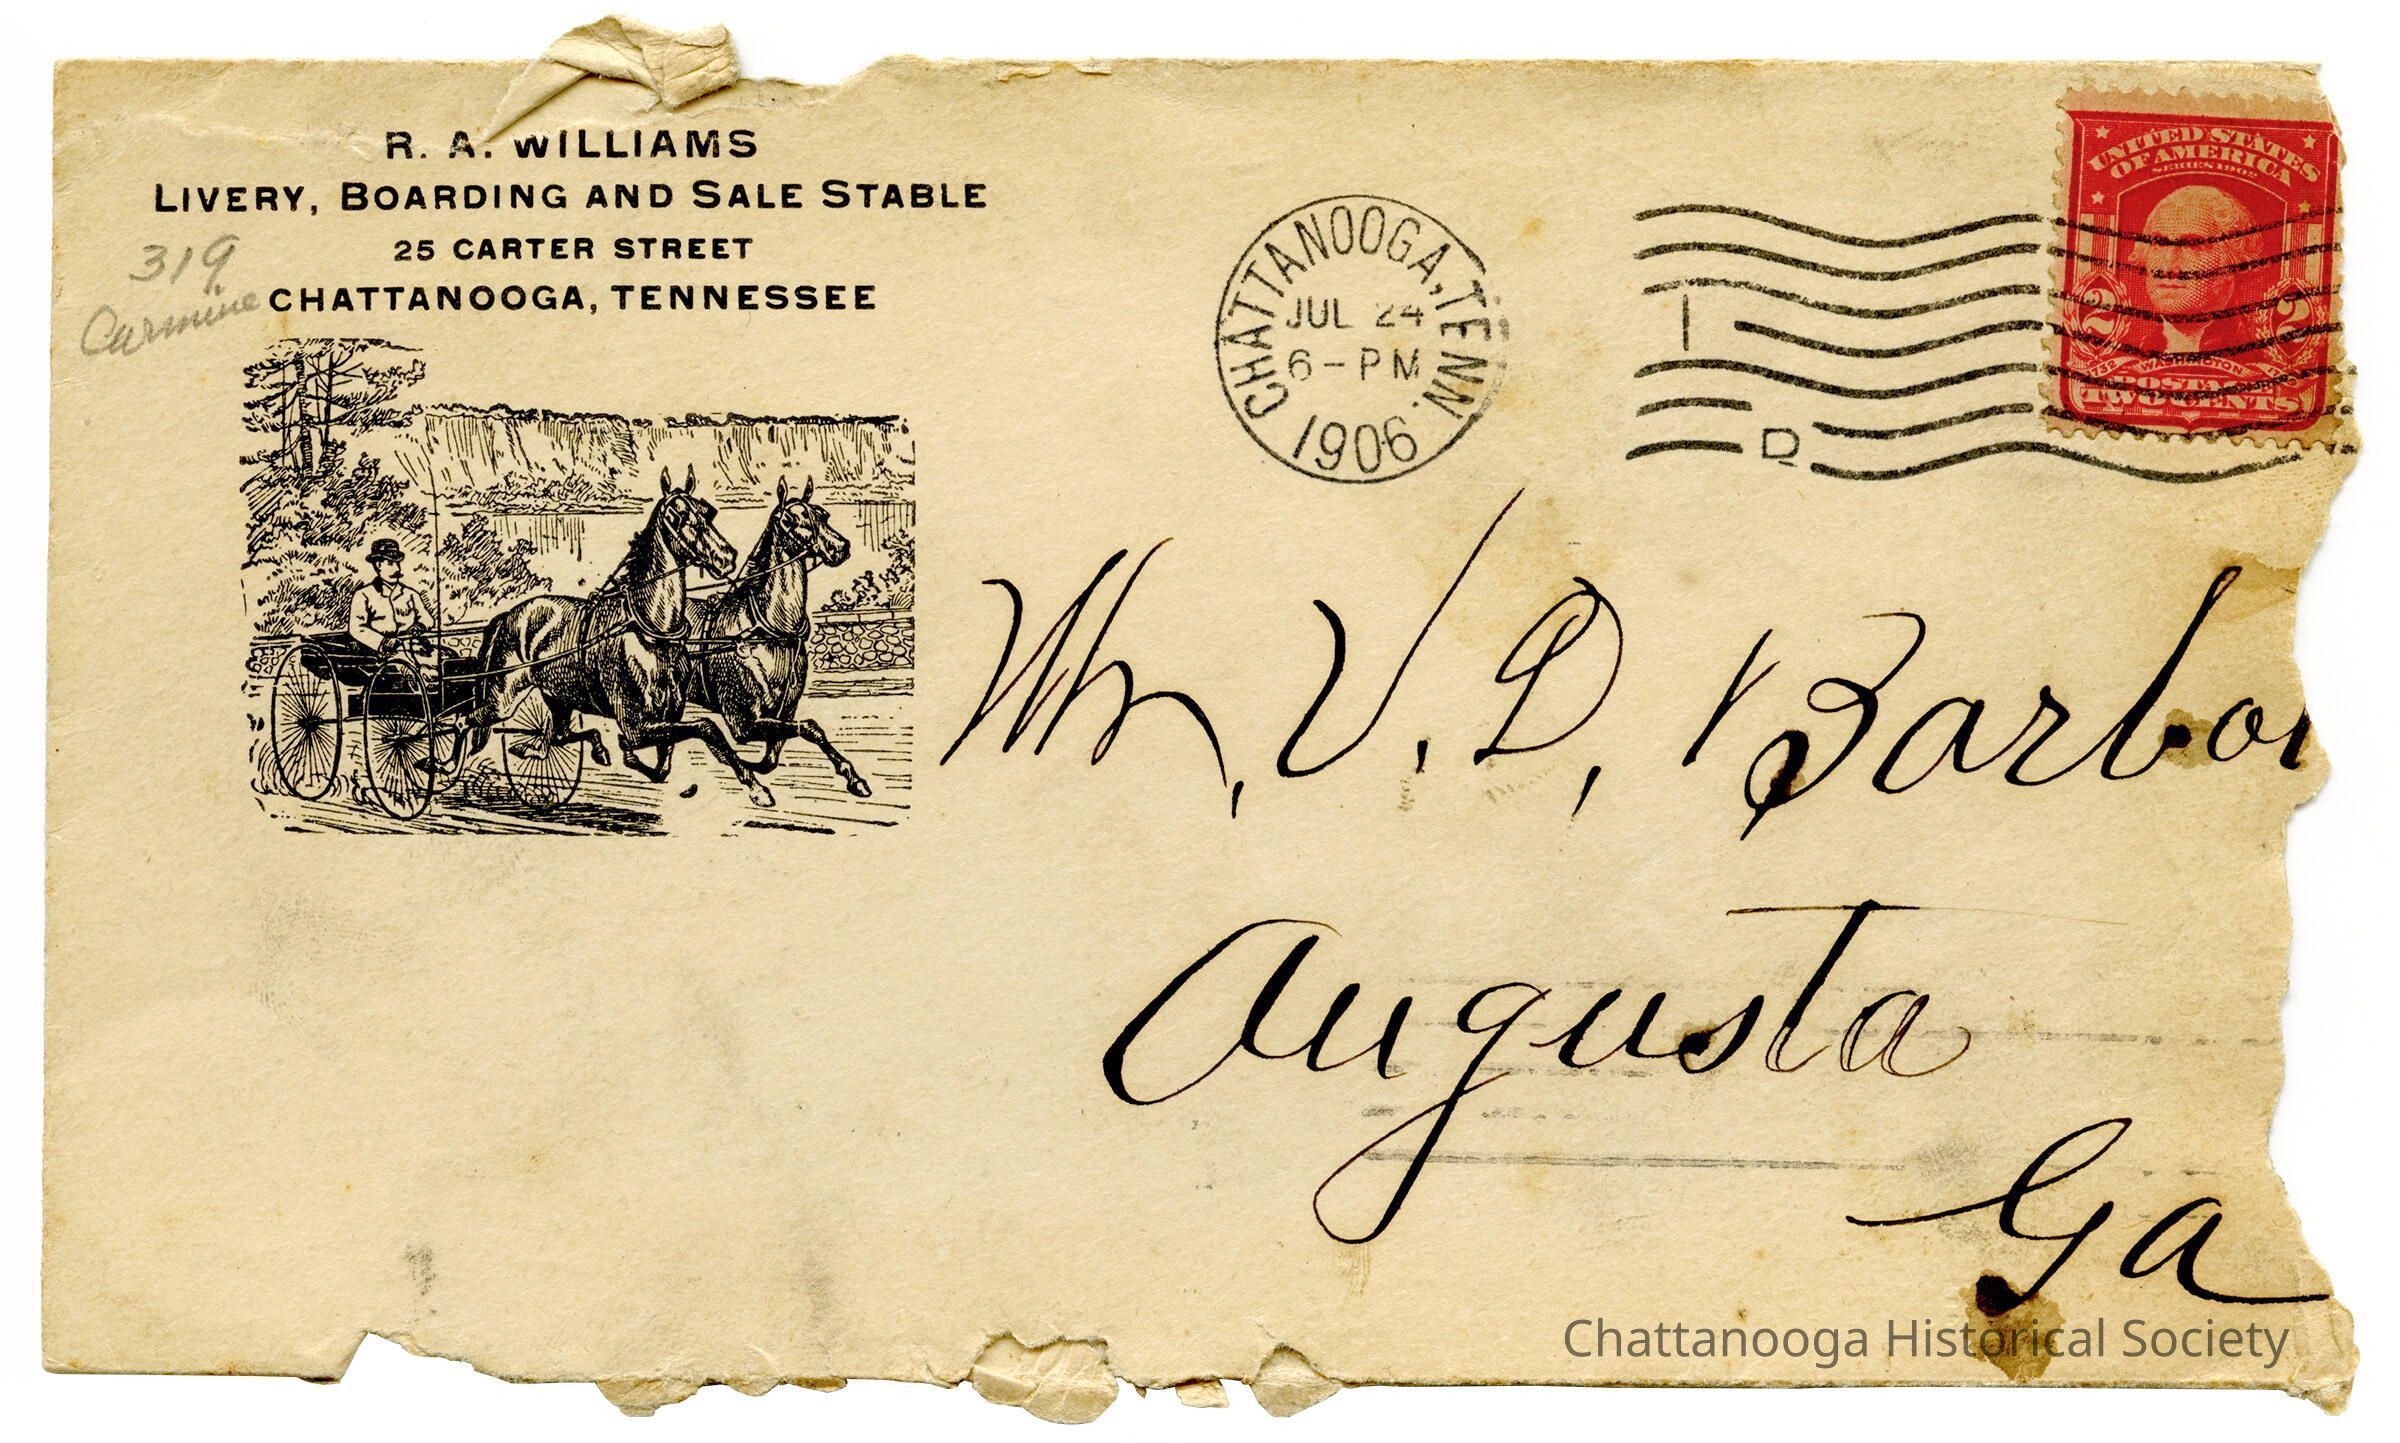 R. A. WILLIAMS
LIVERY, BOARDING AND SALE STABLE
25 CARTER STREET
CHATTANOOGA, TENNESSEE
319
Carmine
CHATTANOOGA, TENN.
JUL 24
6-PM
1906
I
D
UNITED STATES
OF AMERICA
SERIES 1902
2 2
1732 WASHINGTON
POSTAGE
TWO CENTS
Mr. V. D. Barbo
Augusta
Ga
Chattanooga Historical Society